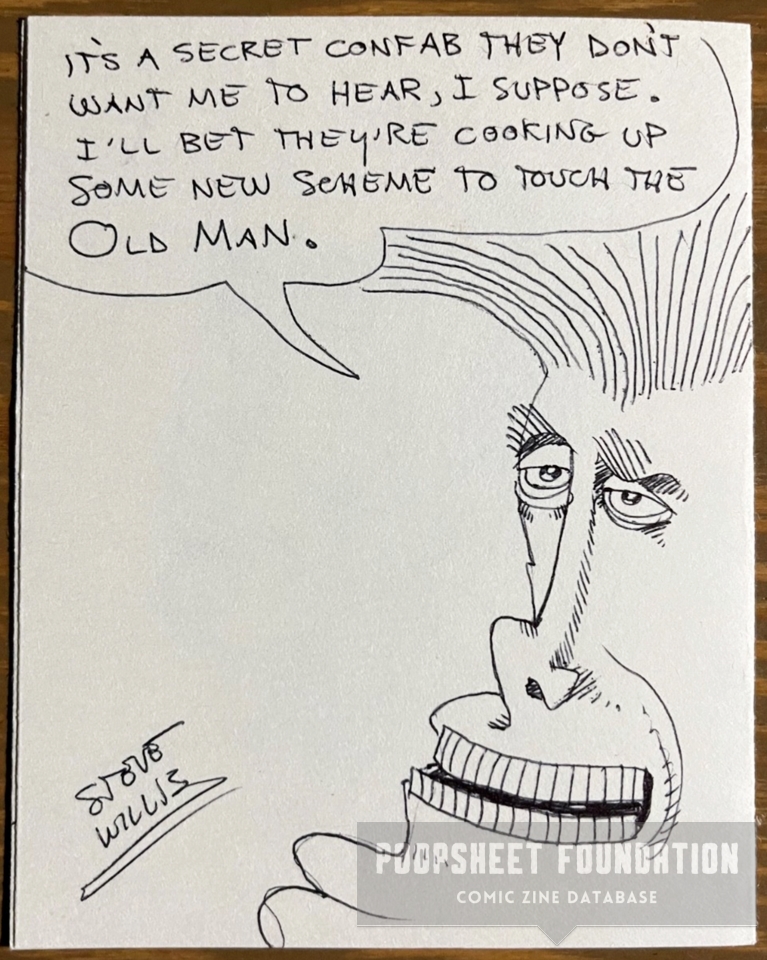 IT'S A SECRET CONFAB THEY DON'T
WANT ME TO HEAR, I SUPPOSE.
I'LL BET THEY'RE COOKING UP
SOME NEW SCHEME TO TOUCH THE
OLD MAN.
STEVE
WILLIS
POOPSHEET FOUNDATION
COMIC ZINE DATABASE